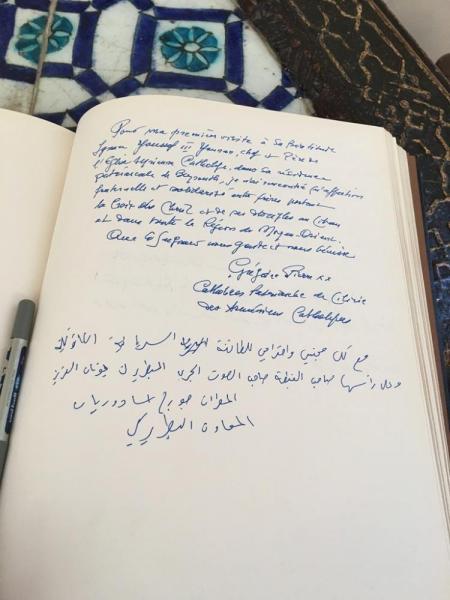 Pour ma première visite à Sa Béatitude
Ignace Youssef III Younan, chef et Père de
l'Église syrienne Catholique, dans sa résidence
patriarcale de Beyrouth, je n'ai rencontré qu'affection
fraternelle et solidarité entre frères portant
la Croix du Christ et de ses disciples au Liban
et dans toute la Région du Moyen-Orient.
Que le Seigneur nous garde et nous bénisse
Grégoire Pierre XX
Catholicos Patriarche de Cilicie
des Arméniens Catholiques
مع كل محبتي واحترامي للطائفة السريانية
وعلى رأسها صاحب الغبطة صاحب الصوت الجريء البطريرك يونان العزيز
المطران جورج اسادوريان
المعاون البطريركي